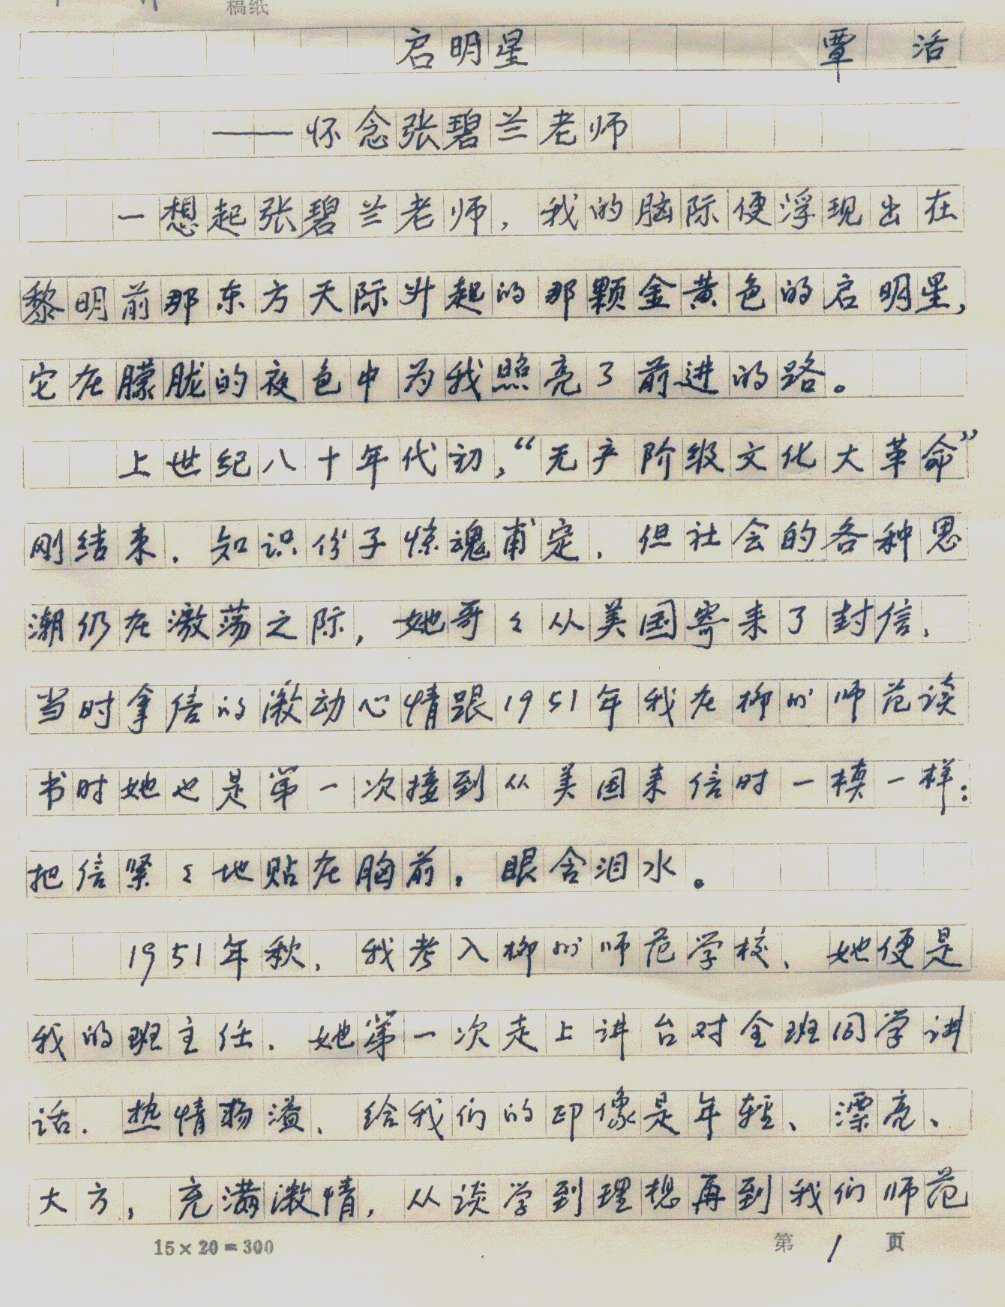 稿纸
启明星 覃洛
——怀念张碧兰老师
一想起张碧兰老师，我的脑际便浮现出在
黎明前那东方天际升起的那颗金黄色的启明星，
它在朦胧的夜色中为我照亮了前进的路。
上世纪八十年代初，“无产阶级文化大革命”
刚结束，知识份子惊魂甫定，但社会的各种思
潮仍在激荡之际，她哥々从美国寄来了封信，
当时拿信的激动心情跟1951年我在柳州师范读
书时她也是第一次接到从美国来信时一模一样：
把信紧々地贴在胸前，眼含泪水。
1951年秋，我考入柳州师范学校、她便是
我的班主任。她第一次走上讲台对全班同学讲
话，热情扬溢，给我们的印像是年轻、漂亮、
大方，充满激情，从谈学到理想再到我们师范
15×20=300 第1页